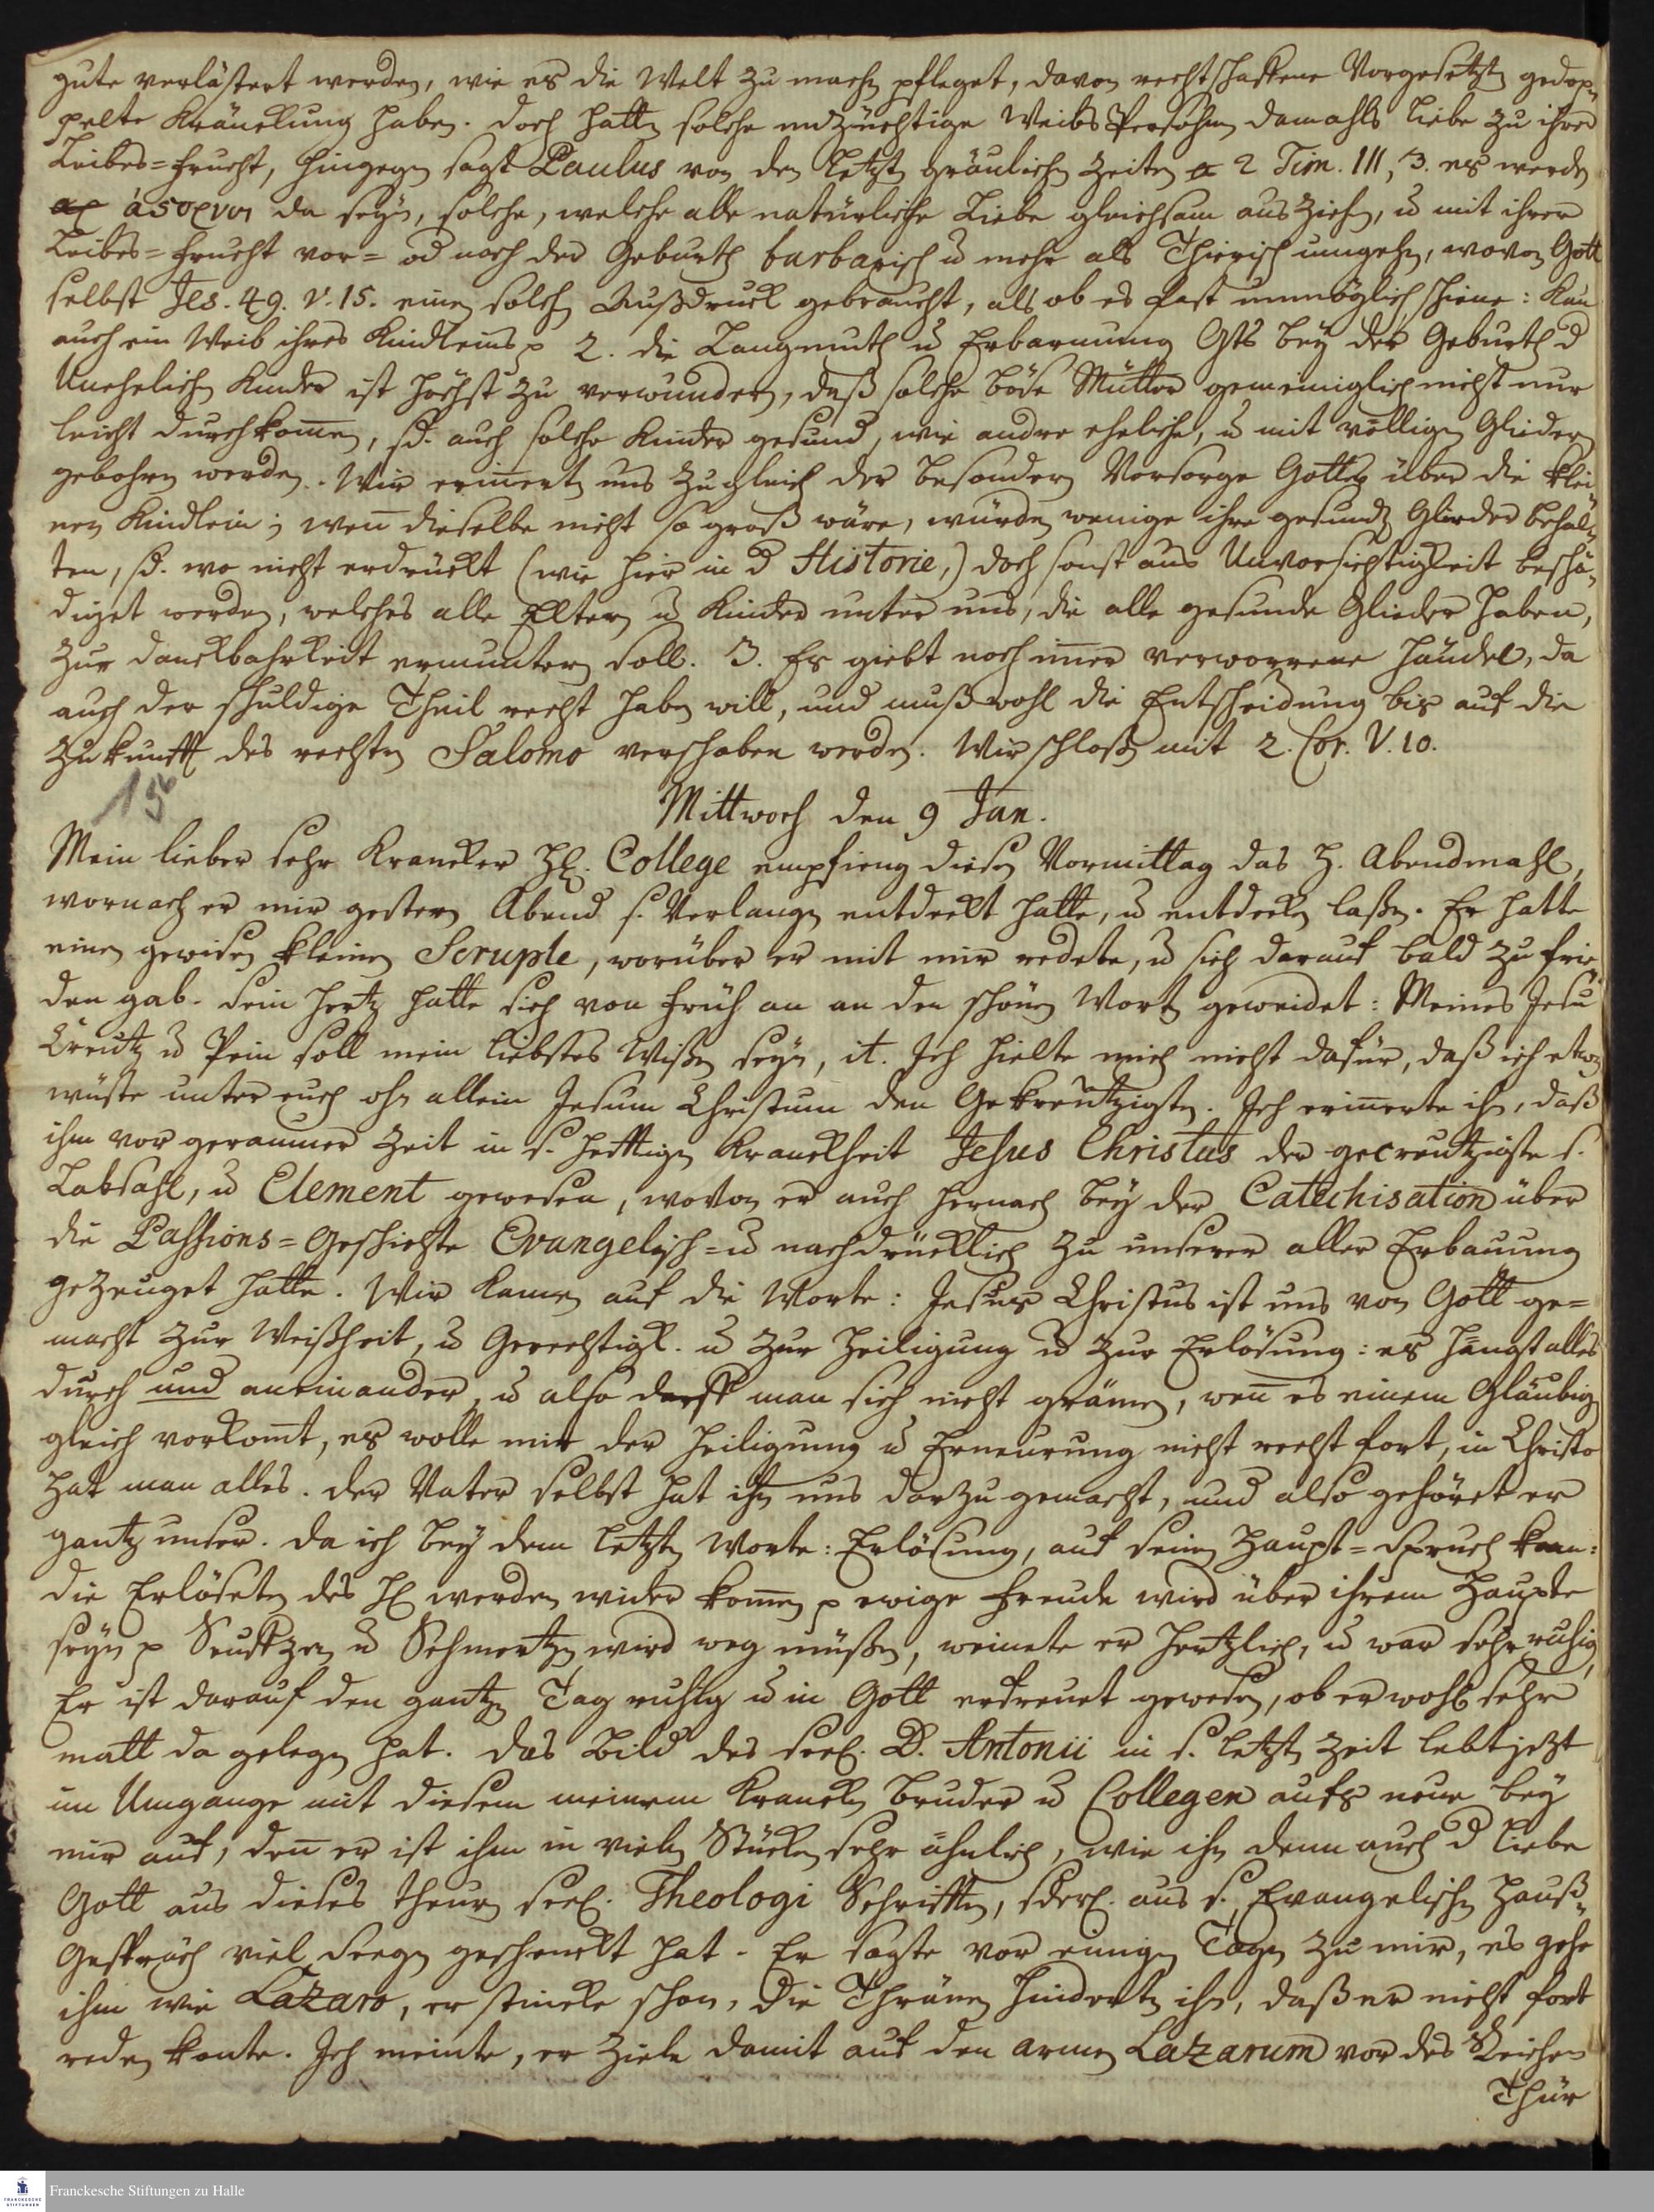 gute verlästert werden, wie es die Welt zu machen pfleget, davon rechtschaffene Vorgesetzte gedop-
pelte Kränckung haben. Doch hatten solche unzüchtige Weibs Persohnen damahls Liebe zu ihrer
Leibes=Frucht, hingegen sagt Paulus von den letzten gräulichen Zeiten 2 Tim. III, 3. es werden
ἄϛοργοι da seyn, solche, welche alle natürliche Liebe gleichsam ausziehen, u mit ihrer
Leibes=Frucht vor= od nach der Geburth barbarisch u mehr als Thierisch umgehen, wovon Gott
selbst Jes. 49. v. 15. einen solchen Außdruck gebraucht, als ob es fast unmöglich schiene: Kan
auch ein Weib ihres Kindleins p 2. die Langmuth u Erbarmung Gts bey der Geburth d
Unehelichen Kinder ist höchst zu verwundern, daß solche böse Mütter gemeiniglich nicht nur
leicht durchkom̅en, sd. auch solche Kinder gesund, wie andre eheliche, u mit völligen Gliedern
gebohren werden. Wir erin̅erten uns zugleich der besondern Vorsorge Gottes über die klei-
nen Kindlein; wen̅ dieselbe nicht so groß wäre, würden wenige ihre gesunde Glieder behal-
ten, sd. wo nicht erdrückt (wie hier in d Historie,) doch sonst aus Unvorsichtigkeit beschä-
diget werden, welches alle Eltern u Kinder unter uns, die alle gesunde Glieder haben,
zur Danckbahrkeit ermuntern soll. 3. Es giebt noch im̅er verworrene Händel, da
auch der schuldige Theil recht haben will, und muß wohl die Entscheidung bis auf die
Zukunfft des rechten Salomo verschoben werden. Wir schloßen mit 2. Cor. V. 10.
15
Mittwoch den 9 Jan.
Mein lieber sehr Krancker H. College empfieng diesen Vormittag das H. Abendmahl,
wornach er mir gestern Abend s. Verlangen entdeckt hatte, u entdecken laßen. Er hatte
einen gewißen kleinen Scruple, worüber er mit mir redete, u sich darauf bald zu frie-
den gab. Sein Hertz hatte sich von früh an an den schönen Worten geweidet: Meines Jesu
Creutz u Pein soll mein liebstes Wißen seyn, it. Ich hielte mich nicht dafür, daß ich etwas
wüste unter euch ohn allein Jesum Christum den Gekreutzigten. Ich erin̅erte ihn, daß
ihm vor geraumer Zeit in s. hefftigen Kranckheit Jesus Christus der gecreutzigte s.
Labsahl, u Element gewesen, wovon er auch hernach bey der Catechisation über
die Passions=Geschichte Evangelisch= u nachdrücklich zu unserer aller Erbauung
gezeuget hatte. Wir kamen auf die Worte: Jesus Christus ist uns von Gott ge=
macht zur Weißheit, u Gerechtigk. u zur Heiligung u zur Erlösung: es hängt alles
durch und aneinander, u also darff man sich nicht grämen, wen̅ es einem Gläubigen
gleich vorkom̅t, es wolle mit der Heiligung u Erneurung nicht recht fort, in Christo
hat man alles. Der Vater selbst hat ihn uns darzu gemacht, und also gehöret er
gantz unser. Da ich bey dem letzten Worte: Erlösung, auf seinen Haupt=Spruch kam:
die Erlöseten des H werden wider kom̅en p ewige Freude wird über ihrem Haupte
seyn p Seuffzen u Schmertzen wird weg müßen, weinete er hertzlich, u war sehr ruhig,
Er ist darauf den gantzen Tag ruhig u in Gott erfreuet gewesen, ob er wohl sehr
matt da gelegen hat. Das Bild des seel. D. Antonii in s. letzten Zeit lebt jezt
im Umgange mit diesem meinem Krancken Bruder u Collegen aufs neue bey
mir auf, den̅ er ist ihm in vielen Stücken sehr ähnlich, wie ihn denn auch d liebe
Gott aus dieses theuren seel. Theologi Schrifften, sderl. aus s. Evangelischen Hauß-
Gespräch viel Seegen geschenckt hat. Er sagte vor einigen Tagen zu mir, es gehe
ihm wie Lazaro, er stincke schon, die Thränen hinderten ihn, daß er nicht fort
reden konte. Ich meinte, er ziele damit auf den armen Lazarum vor des Reichen
Thür
Franckesche Stiftungen zu Halle